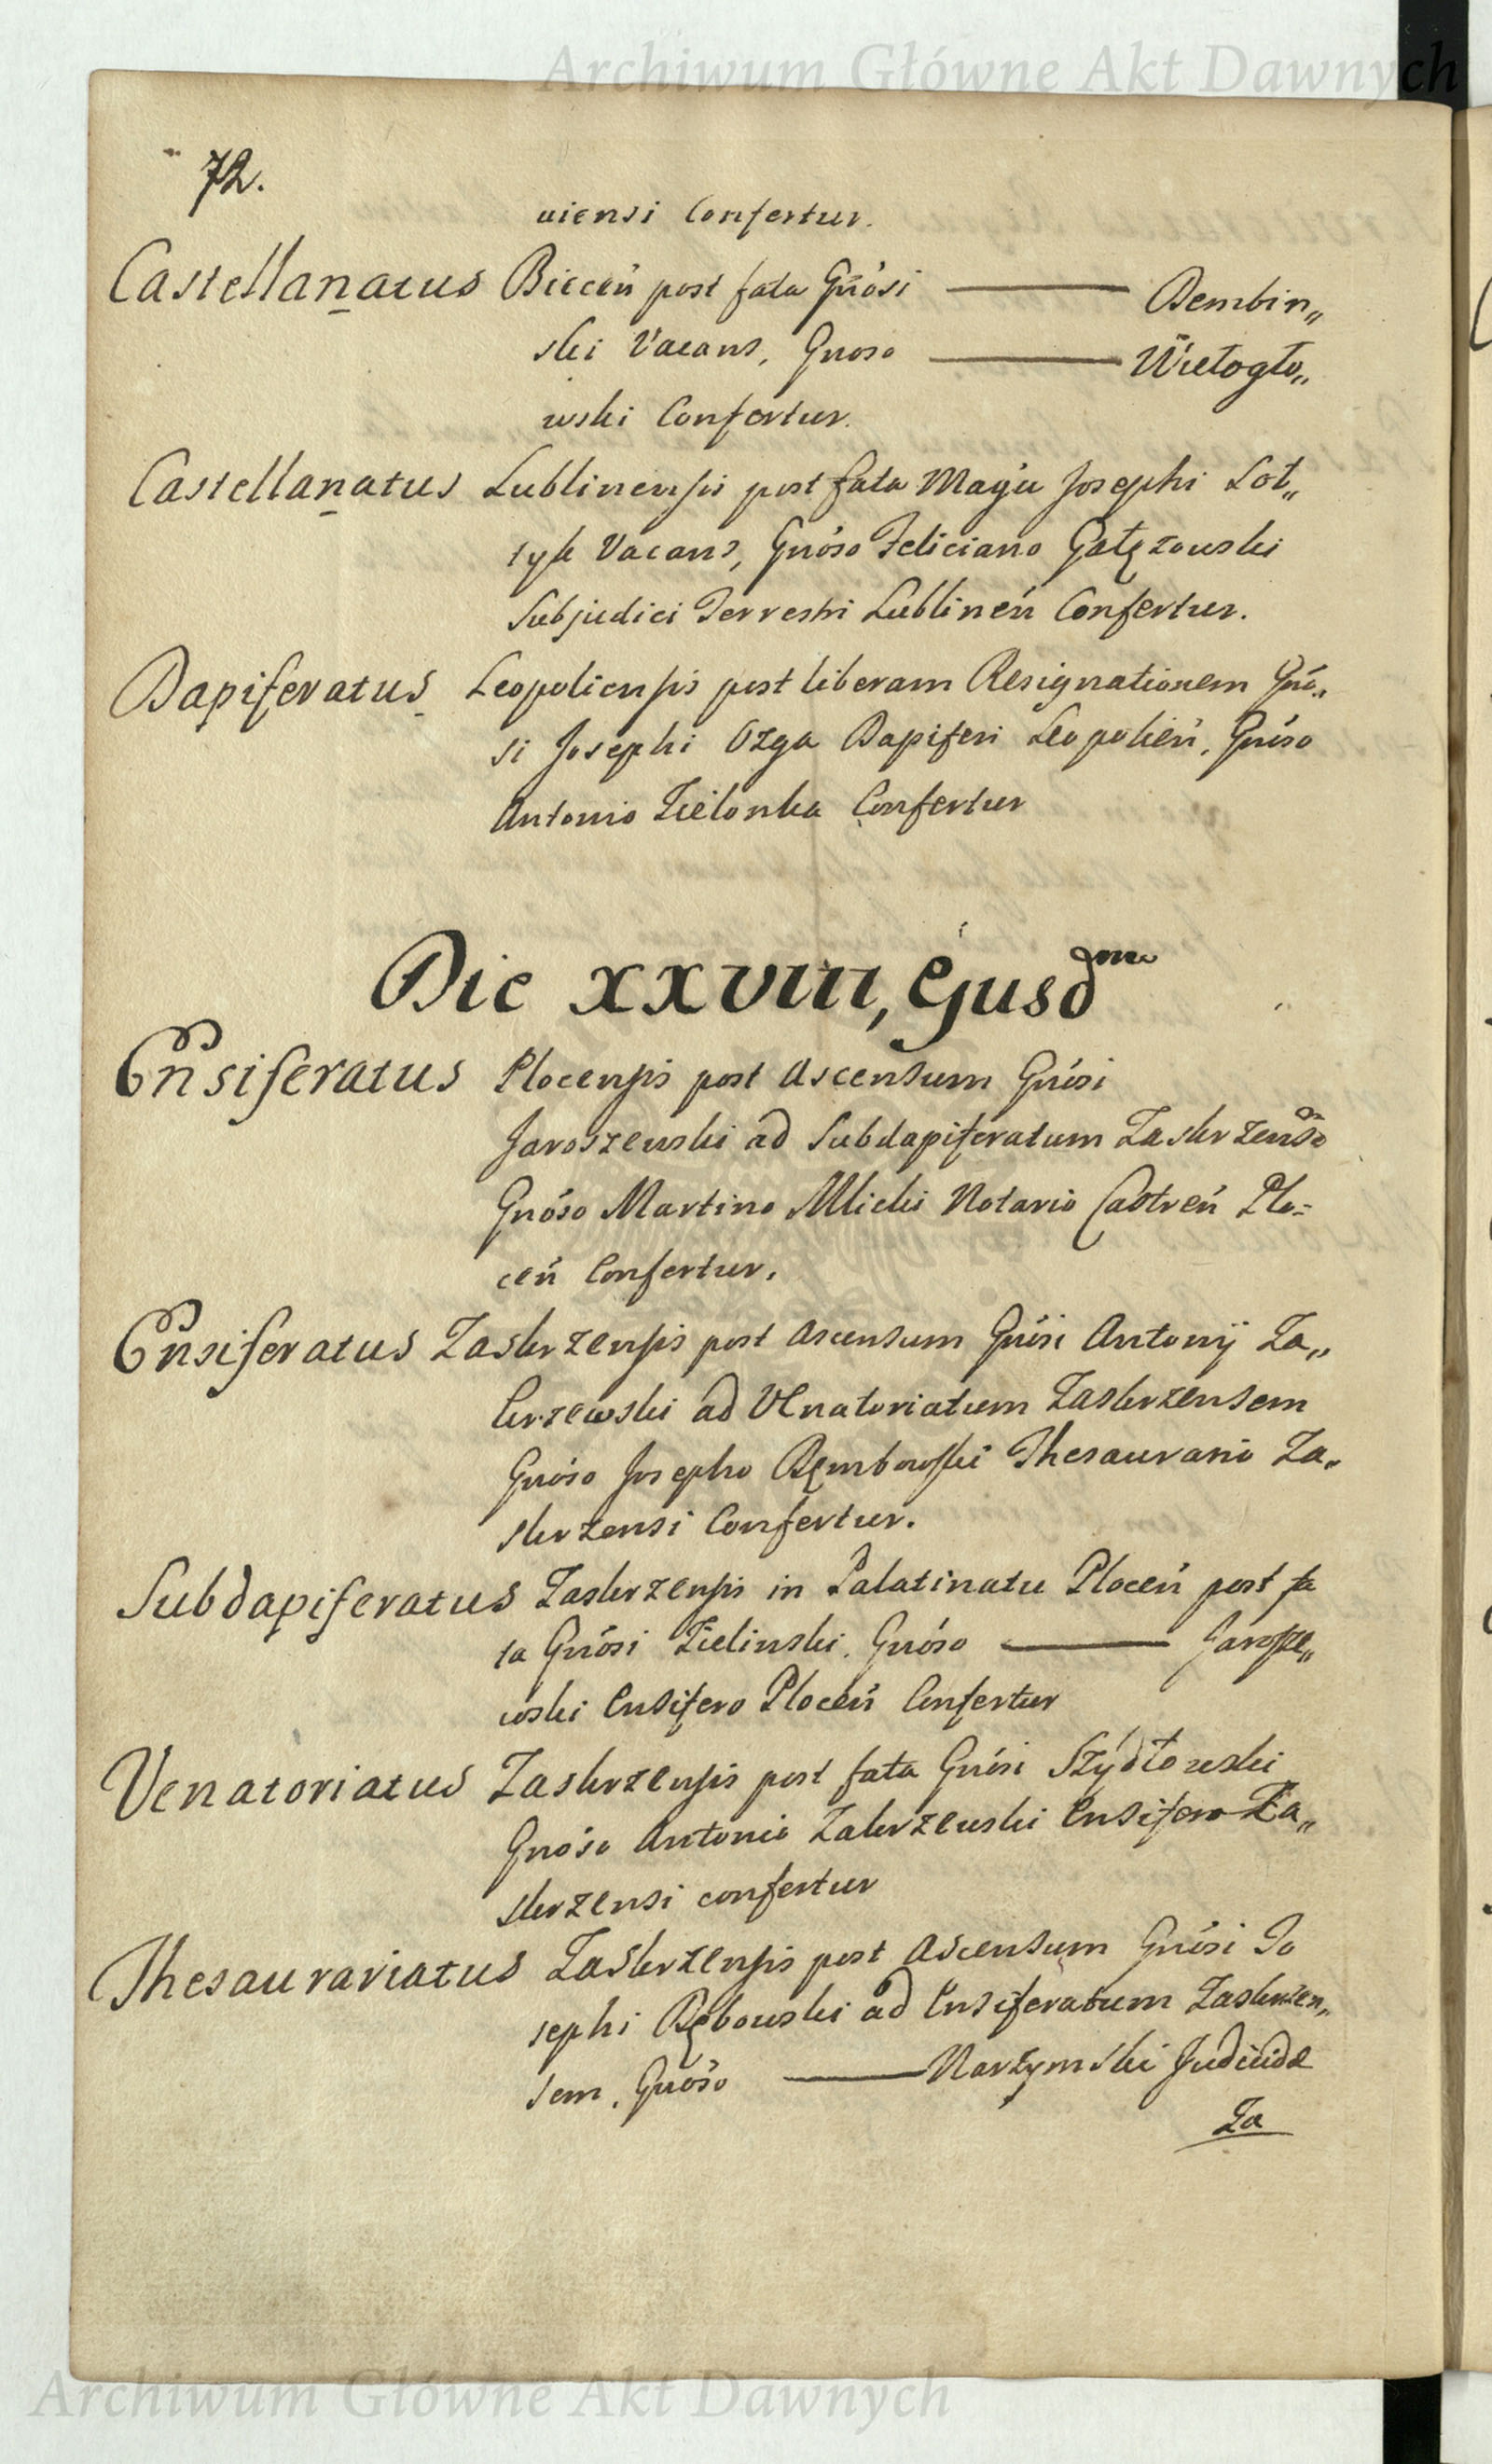 Archiwum Główne Akt Dawnych
72.
uiensi Confertur.
Castellanatus Biecen̄ post fata Gn̄osi ——— Dembin„
ski Vacans, Gnoso ——— Wielogło„
wski Confertur.
Castellanatus Lublinensis post fata Magci Josephi Soł„
tyk Vacans, Gnōso Feliciano Gałęzowski
Subjudici Terrestri Lublinen̄ Confertur.
Dapiferatus Leopoliensis post liberam Resignationem Gnō„
si Josephi Ozga Dapiferi Leopolien̄, Gnōso
Antonio Zielonka Confertur
Die XXVIII, Ejusdᵐ
Ensiferatus Plocensis post Ascensum Gnōsi
Jaroszewski ad Subdapiferatum Zaskrzens̄
Gnōso Martino Mlicki Notario Castren̄ Plo=
cen̄ Confertur.
Ensiferatus Zaskrzensis post ascensum Gnōsi Antonij Za„
krzewski ad Venatoriatum Zaskrzensem
Gnōso Josepho Rembowski Thesaurario Za„
skrzensi Confertur.
Subdapiferatus Zaskrzensis in Palatinatu Plocen̄ post fa
ta Gnōsi Zielinski, Gnōso ——— Jarosze„
wski Ensifero Plocen̄ Confertur
Venatoriatus Zaskrzensis post fata Gnōsi Szydłowski
Gnōso Antonio Zakrzewski Ensifero Za„
skrzensi confertur
Thesaurariatus Zaskrzensis post Ascensum Gnōsi Jo
sephi Rębowski ad Ensiferatum Zaskrzen„
sem, Gnōso ——— Narzymski Judicidæ
Za
Archiwum Główne Akt Dawnych